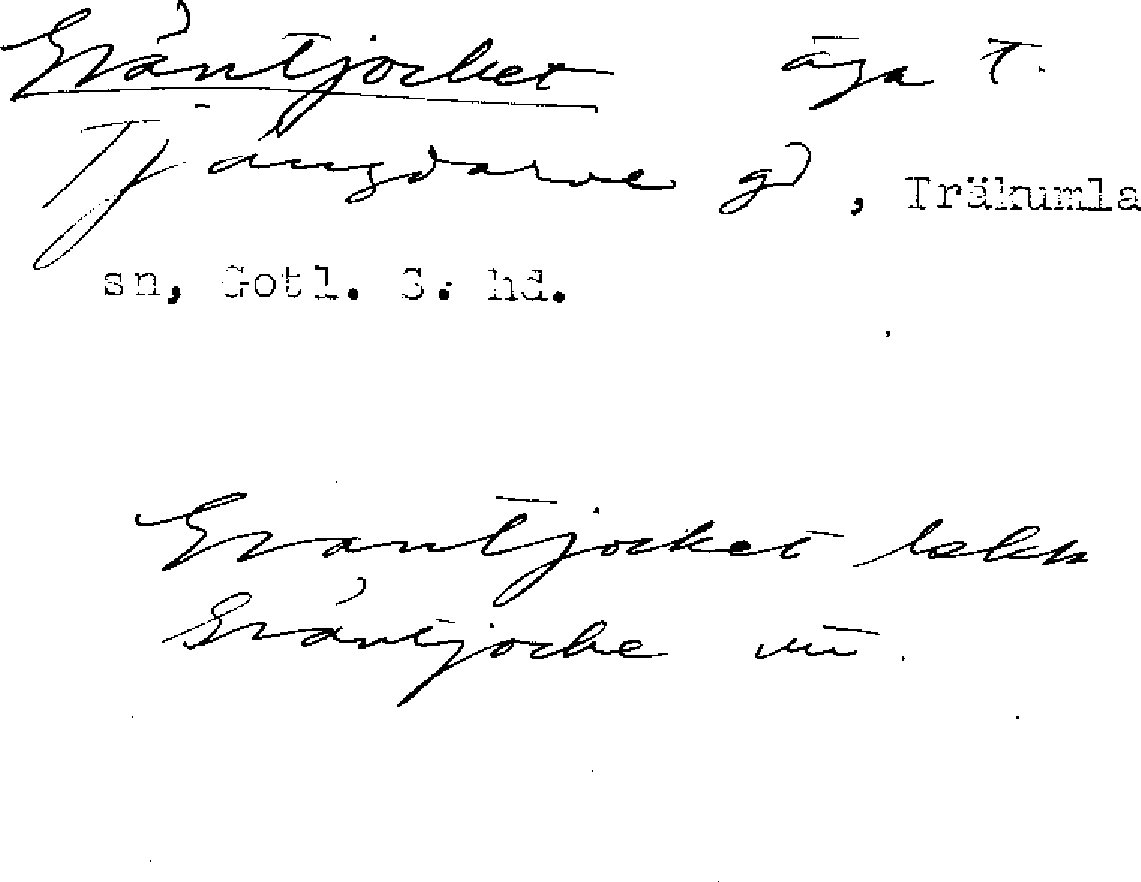 Gräntjocket äga t.
Tjängdarve gd, Träkumla
sn, Gotl. S. hd.
Grantjocket
Gräntjocke